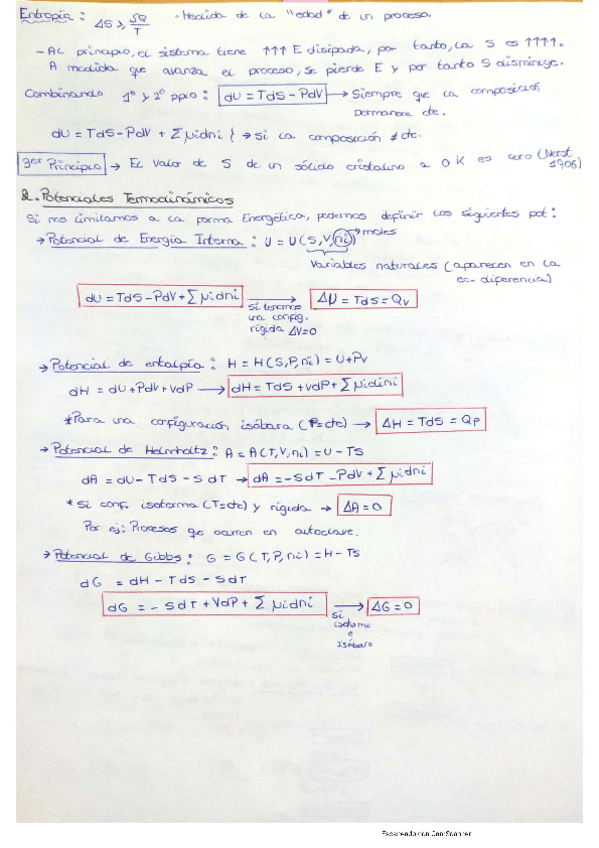 Entropía: ΔS ≥ δQ/T · Medida de la "edad" de un proceso.
- Al principio, el sistema tiene ↑↑↑ E disipada, por tanto, la S es ↑↑↑↑.
A medida que avanza el proceso, se pierde E y por tanto S disminuye.
Combinando 1º y 2º ppio: dU = TdS - PdV → Siempre que la composición
permanece cte.
dU = TdS - PdV + Σμidni } → si la composición ≠ cte.
3er Principio → El valor de S de un sólido cristalino a 0 K es cero (Nerst 1906)
2. Potenciales Termodinámicos
Si nos limitamos a la forma Energética, podemos definir los siguientes pot:
→ Potencial de Energía Interna: U = U(S,V,ni) → moles
Variables naturales (aparecen en la
ec. diferencia)
dU = TdS - PdV + Σμidni → ΔU = TdS = Qv
Si tenemos
una config.
rígida ΔV=0
→ Potencial de entalpía: H = H(S,P,ni) = U+PV
dH = dU + PdV + VdP → dH = TdS + VdP + Σμidini
*Para una configuración isóbara (P=cte) → ΔH = TdS = Qp
→ Potencial de Helmholtz: A = A(T,V,ni) = U - TS
dA = dU - TdS - SdT → dA = -SdT - PdV + Σμidni
* Si conf. isoterma (T=cte) y rígida → ΔA = 0
Por ej: Procesos que ocurren en autoclave.
→ Potencial de Gibbs: G = G(T,P,ni) = H - TS
dG = dH - TdS - SdT
dG = - SdT + VdP + Σμidni → ΔG = 0
Si
isotermo
e
isóbaro
Escaneado con CamScanner